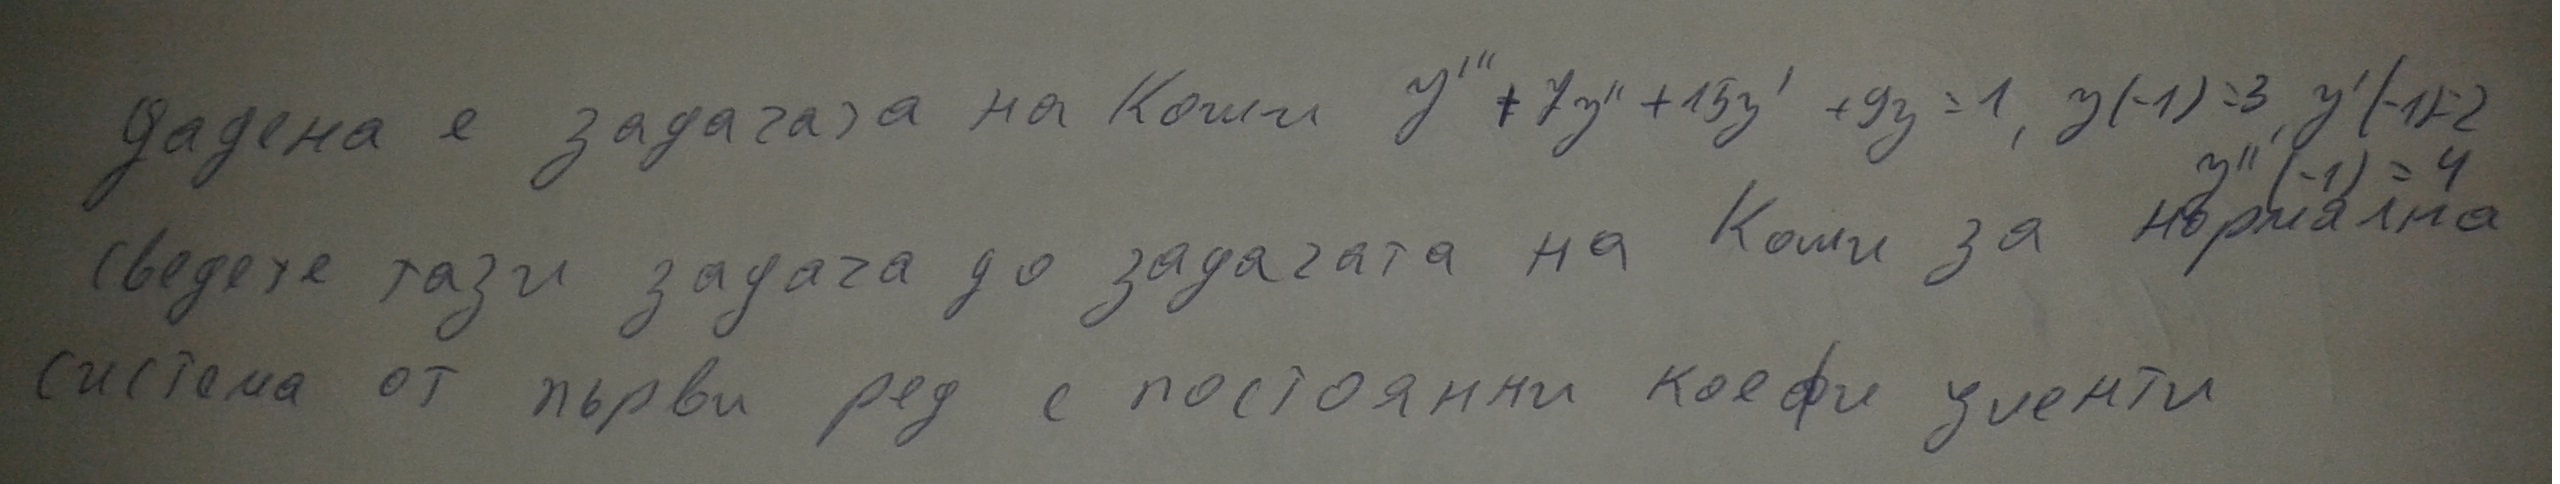 Дадена е задачата на Коши y''' + 7y'' + 15y' + 9y = 1, y(-1)=3, y'(-1)=2
y''(-1) = 4
Сведете тази задача до задачата на Коши за нормална
система от първи ред с постоянни коефициенти